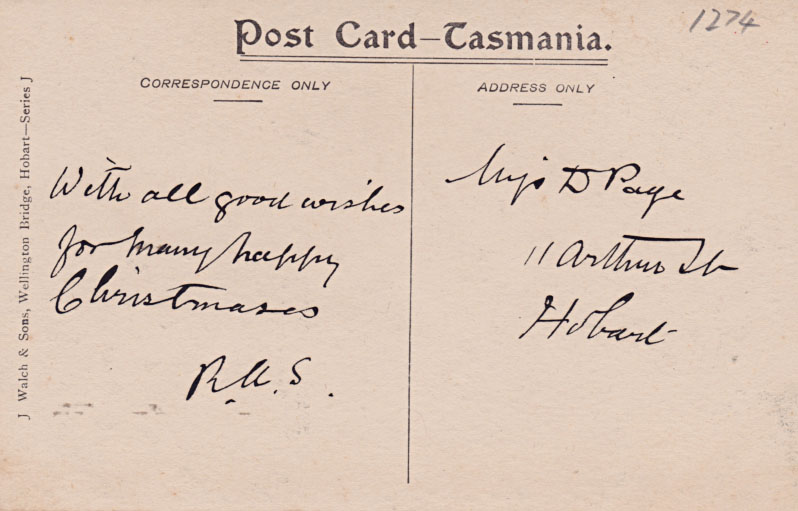 1274
Post Card–Tasmania.
CORRESPONDENCE ONLY
ADDRESS ONLY
J Walch & Sons, Wellington Bridge, Hobart—Series J
With all good wishes
for many happy
Christmases
R.U.S.
Miss D Page
11 Arthur St
Hobart